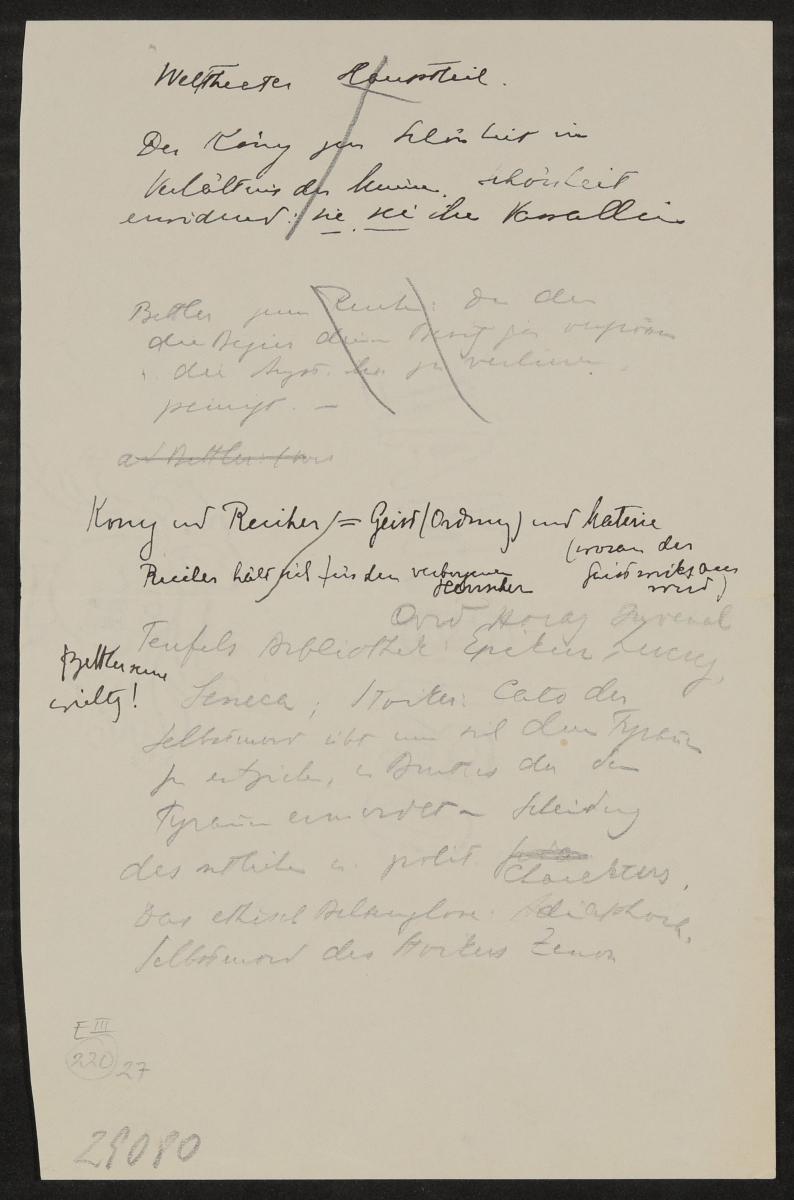 Welttheater Hauptteil.
Der König zur Schönheit im
Verhältnis der Schönheit
erwidernd: sie sei ihr Vasallin
Bettler zum Reichen: Du den
die Begier deinen Besitz zu vergrössern
u. die Angst ihn zu verlieren
peinigt. —
ad Bettler:
König und Reicher = Geist (Ordnung) und Materie
(woran der
Geist wirksam
wird)
Reicher hält sich für den verborgenen
Herrscher
Ovid Horaz Juvenal
Teufels Bibliothek: Epikur, Lucrez,
Bettlerscene
wichtig!
Seneca; Stoiker: Cato der
Selbstmord übt um sich dem Tyrannen
zu entziehen, u. Brutus der den
Tyrannen ermordet — Scheidung
des sittlichen u. polit.
Charakters.
Das ethisch Belanglose: Adiaphora.
Selbstmord des Stoikers Zenon
E III
220
27
29080